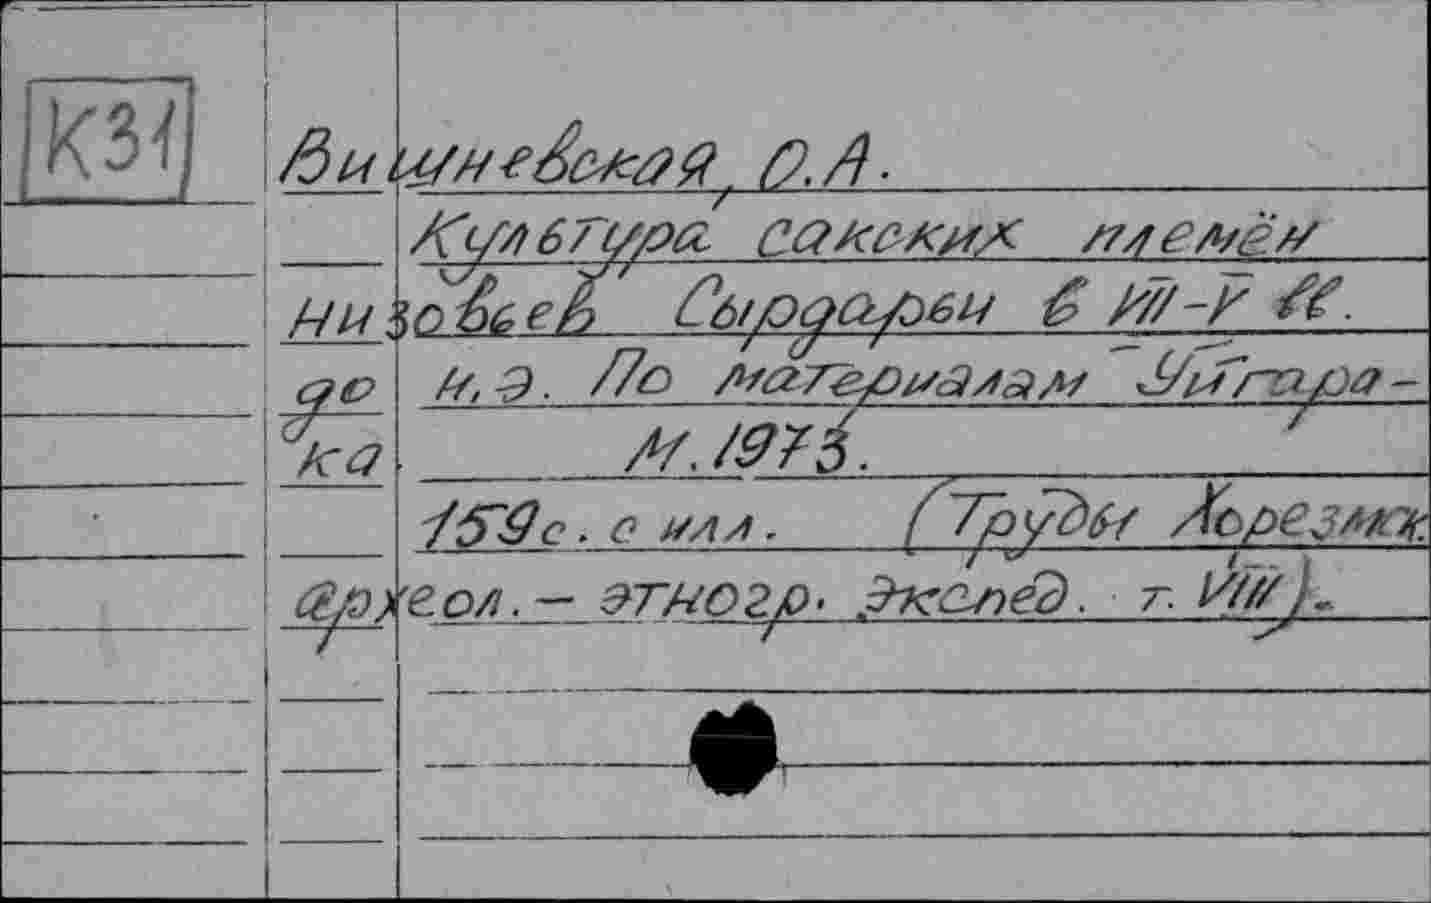 К31
Вишневская, О.А.
Культура сакских племён
низовьев Сырдарьи в VII-V вв.
до н.э. По материалам Уйгара-
ка. М. 1973.
159с. с илл. (Труды Хорезмск.
археол.- этногр. Экспед. т. VIII).